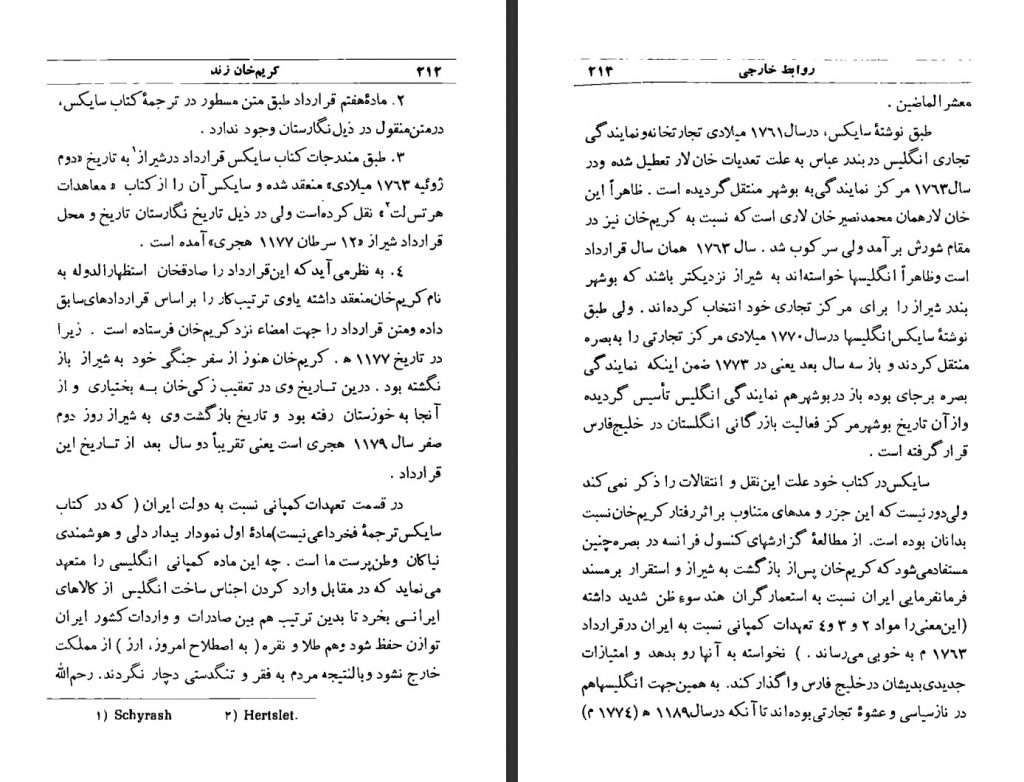 ۲۱۲ کریم‌خان زند
۲. مادهٔ هفتم قرارداد طبق متن مسطور در ترجمهٔ کتاب سایکس،
در متن منقول در ذیل نگارستان وجود ندارد .
۳. طبق مندرجات کتاب سایکس قرارداد در شیراز۱ به تاریخ «دوم
ژوئیه ۱۷۶۳ میلادی» منعقد شده و سایکس آن را از کتاب « معاهدات
هرتس‌لت۲» نقل کرده‌است ولی در ذیل تاریخ نگارستان تاریخ و محل
قرارداد شیراز «۱۲ سرطان ۱۱۷۷ هجری» آمده است .
۴. به نظر می‌آید که این قرارداد را صادقخان استظهارالدوله به
نام کریم‌خان منعقد داشته یاوی ترتیب کار را براساس قراردادهای سابق
داده ومتن قرارداد را جهت امضاء نزد کریم‌خان فرستاده است . زیرا
در تاریخ ۱۱۷۷ ه . کریم‌خان هنوز از سفر جنگی خود به شیراز باز
نگشته بود . درین تاریخ وی در تعقیب زکی‌خان به بختیاری و از
آنجا به خوزستان رفته بود و تاریخ بازگشت وی به شیراز روز دوم
صفر سال ۱۱۷۹ هجری است یعنی تقریباً دو سال بعد از تاریخ این
قرارداد .
در قسمت تعهدات کمپانی نسبت به دولت ایران ( که در کتاب
سایکس ترجمهٔ فخرداعی نیست) مادهٔ اول نمودار بیدار دلی و هوشمندی
نیاکان وطن‌پرست ما است . چه این ماده کمپانی انگلیسی را متعهد
می‌نماید که در مقابل وارد کردن اجناس ساخت انگلیس از کالاهای
ایرانی بخرد تا بدین ترتیب هم بین صادرات و واردات کشور ایران
توازن حفظ شود وهم طلا و نقره ( به اصطلاح امروز، ارز ) از مملکت
خارج نشود وبالنتیجه مردم به فقر و تنگدستی دچار نگردند. رحم‌الله
۱) Schyrash ۲) Hertslet.
روابط خارجی ۲۱۳
معشرالماضین .
طبق نوشتهٔ سایکس، درسال ۱۷۶۱ میلادی تجارتخانه ونمایندگی
تجاری انگلیس در بندر عباس به علت تعدیات خان لار تعطیل شده ودر
سال ۱۷۶۳ مرکز نمایندگی به بوشهر منتقل گردیده است . ظاهراً این
خان لار همان محمدنصیرخان لاری است که نسبت به کریم‌خان نیز در
مقام شورش برآمد ولی سرکوب شد . سال ۱۷۶۳ همان سال قرارداد
است وظاهراً انگلیسها خواسته‌اند به شیراز نزدیکتر باشند که بوشهر
بندر شیراز را برای مرکز تجاری خود انتخاب کرده‌اند . ولی طبق
نوشتهٔ سایکس انگلیسها درسال ۱۷۷۰ میلادی مرکز تجارتی را به‌بصره
منتقل کردند و باز سه سال بعد یعنی در ۱۷۷۳ ضمن اینکه نمایندگی
بصره برجای بوده باز در بوشهر هم نمایندگی انگلیس تأسیس گردیده
واز آن تاریخ بوشهر مرکز فعالیت بازرگانی انگلستان در خلیج‌فارس
قرار گرفته است .
سایکس در کتاب خود علت این نقل و انتقالات را ذکر نمی‌کند
ولی دور نیست که این جزر و مدهای متناوب براثر رفتار کریم‌خان نسبت
بدانان بوده است. از مطالعهٔ گزارشهای کنسول فرانسه در بصره چنین
مستفاد می‌شود که کریم‌خان پس از بازگشت به شیراز و استقرار برمسند
فرمانفرمایی ایران نسبت به استعمارگران هند سوءِ ظن شدید داشته
(این معنی را مواد ۲ و ۳ و ۴ تعهدات کمپانی نسبت به ایران در قرارداد
۱۷۶۳ م به خوبی می‌رساند . ) نخواسته به آنها رو بدهد و امتیازات
جدیدی بدیشان در خلیج فارس واگذار کند. به همین جهت انگلیسها هم
در ناز سیاسی و عشوهٔ تجارتی بوده‌اند تا آنکه درسال ۱۱۸۹ ه (۱۷۷۴ م)